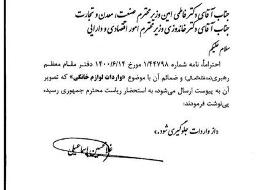 جناب آقای دکتر فاطمی امین وزیر محترم صنعت، معدن و تجارت
جناب آقای دکتر خاندوزی وزیر محترم امور اقتصادی و دارایی
سلام علیکم
احتراماً، نامه شماره ۱/۴۴۷۹۸ مورخ ۱۴۰۰/۶/۱۴ دفتر مقام معظم
رهبری(مدظله‌العالی) و ضمائم آن با موضوع «واردات لوازم خانگی» که تصویر
آن به پیوست ارسال می‌شود، به استحضار ریاست محترم جمهوری رسیده
پی‌نوشت فرمودند:
«از واردات جلوگیری شود.»
غلامحسین اسماعیلی